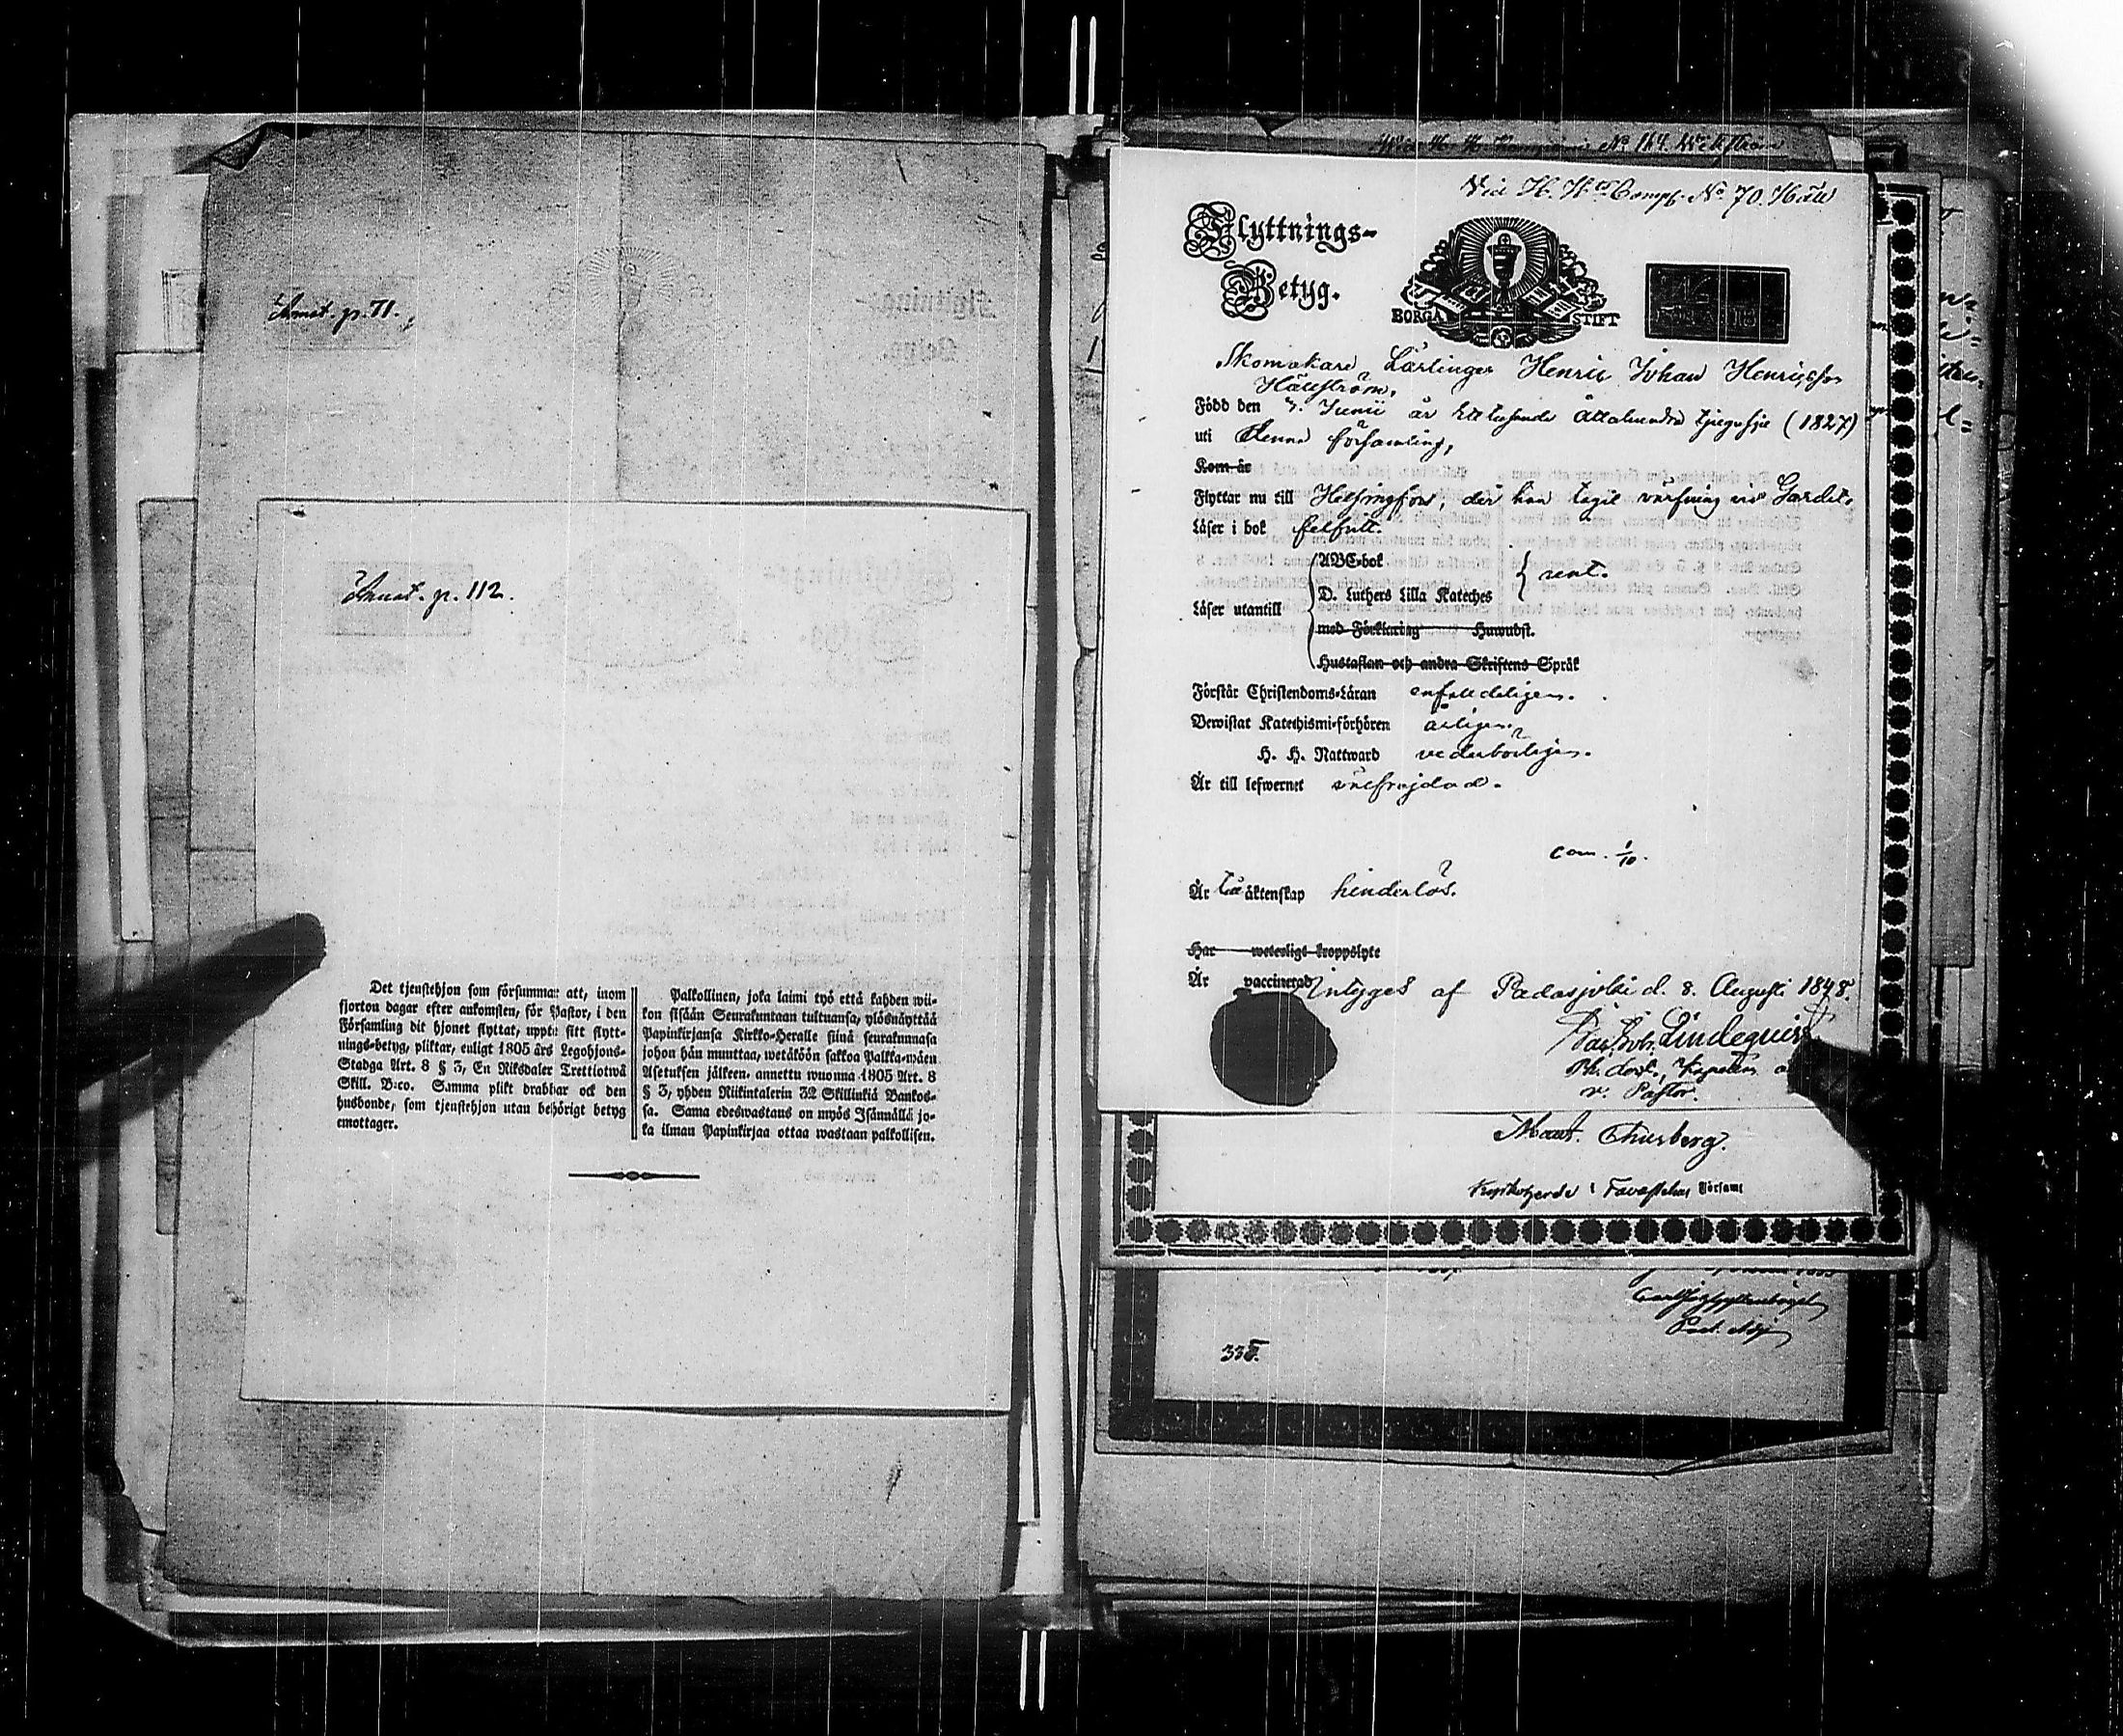 p. 71.
p. 112.
Det tjenstehjon som försummar att, inom
fjorton dagar efter ankomsten, för Pastor, i den
Församling dit hjonet flyttat, uppte sitt flytt-
nings-betyg, pliktar, enligt 1805 års Legohjons-
Stadga Art. 8 § 3, En Riksdaler Trettiotwå
Skill. B:co. Samma plikt drabbar ock den
husbonde, som tjenstehjon utan behörigt betyg
emottager.
Palkollinen, joka laimi lyö että kahden wii-
kon sisään Seurakuntaan tultuansa, ylösnäyttää
Papinkirjansa Kirkko-Heralle siinä seurakunnasa
johon hän muuttaa, wetäköön sakkoa Palkka-wäen
Asetuksen jälkeen, annettu wuonna 1805 Art. 8
§ 3, yhden Riikintalerin 32 Skillinkiä Bankos-
sa. Sama edeswastaus on myös Isännällä jo-
ka ilman Papinkirjaa ottaa wastaan palkollisen.
No 164.
Vid H. Comp. No 70. Häll
Flyttnings-
Betyg.
BORGÅ STIFT
Skomakare Lärlingen Henric Johan Henricsson
Hällström,
Född den 7. Junii år Ettusende Åttahundra tjugusju (1827)
uti denna församling,
Kom år
Flyttar nu till Helsingfors, der han tagit värfning vid Gardet.
Läser i bok felfritt.
Läser utantill
ABC-bok
D. Luthers Lilla Kateches
rent.
med Förklaring Huwudst.
Hustaflan och andra Skriftens Språk
Förstår Christendoms-Läran enfalldeligen.
Bewistat Katechismi-förhören årligen,
H. H. Nattward vederbörligen.
Är till lefwernet välfrejdad.
com. 1/10.
Är till äktenskap hinderlös.
Har weterligt kroppslyte
Är vaccinerad Intygas af Padasjoki d. 8. Augusti 1848.
Lindequist
v. Pastor.
Maut. Thusberg.
i Tavastehus Församl